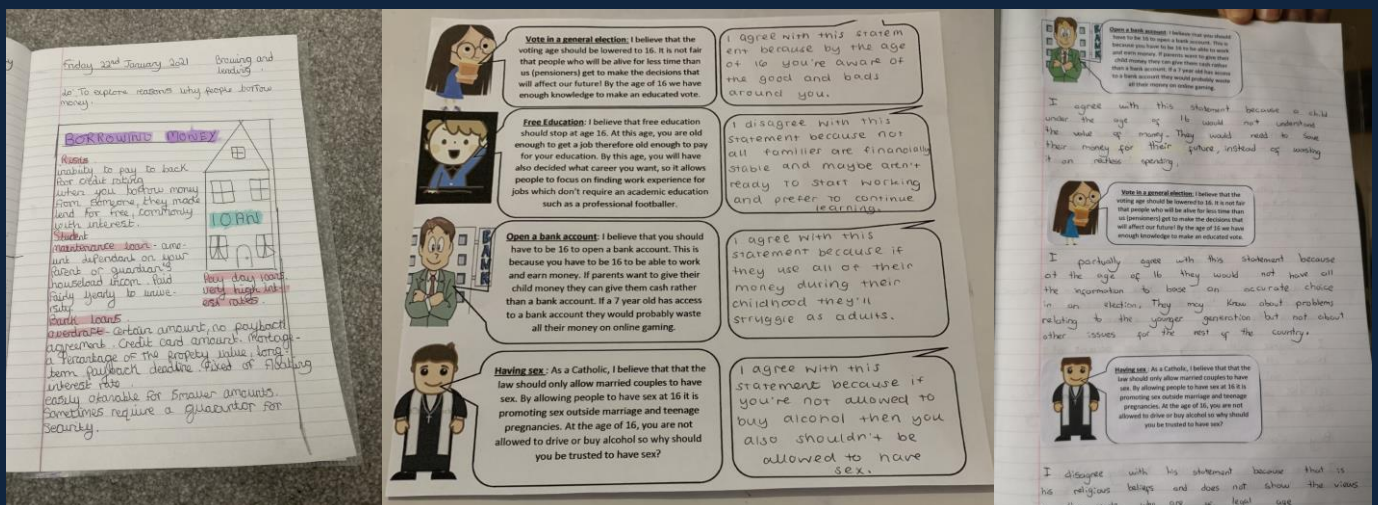 Friday 22nd January 2021
Browing and
lending.
Lo: To explore reasons why people borrow
money.
BORROWING MONEY
Risks
inability to pay to back
Poor credit rating
when you borrow money
from someone, they made
lend for free, commonly
with interest.
Student
maintenance loan - amo-
unt dependant on your
Parent or guardian's
household incom. Paid
LOAN
Pay day loans
very high int-
erest rates.
Bank loans
overdraft - Certain amount, no payback
agreement. Credit card amount. Mortage -
a Percentage of the propety value, long-
term payback deadline. Fixed of Floating
interest rate.
easily obtanable for smaller amounts.
Sometimes require a guarantor for
security.
Vote in a general election: I believe that the
voting age should be lowered to 16. It is not fair
that people who will be alive for less time than
us (pensioners) get to make the decisions that
will affect our future! By the age of 16 we
have enough knowledge to make an educated vote.
I agree with this statem
ent because by the age
of 16 you're aware of
the good and bads
around you.
Free Education: I believe that free education
should stop at age 16. At this age, you are old
enough to get a job therefore old enough to pay
for your education. By this age, you will have
also decided what career you want, so it allows
people to focus on finding work experience for
jobs which don't require an academic education
such as a professional footballer.
I disagree with this
statement because not
all families are financially
stable and maybe aren't
ready to start working
and prefer to continue
learning.
BANK
Open a bank account: I believe that you should
have to be 16 to open a bank account. This is
because you have to be 16 to be able to work
and earn money. If parents want to give their
child money they can give them cash rather
than a bank account. If a 7 year old has access
to a bank account they would probably waste
all their money on online gaming.
I agree with this
statement because if
they use all of their
money during their
childhood they'll
struggle as adults.
Having sex : As a Catholic, I believe that that the
law should only allow married couples to have
sex. By allowing people to have sex at 16 it is
promoting sex outside marriage and teenage
pregnancies. At the age of 16, you are not
allowed to drive or buy alcohol so why should
you be trusted to have sex?
I agree with this
statement because if
you're not allowed to
buy alcohol then you
also shouldn't be
allowed to have
sex.
BANK
Open a bank account: I believe that you should
have to be 16 to open a bank account. This is
because you have to be 16 to be able to work
and earn money. If parents want to give their
child money they can give them cash rather
than a bank account. If a 7 year old has access
to a bank account they would probably waste
all their money on online gaming.
I agree with this statement because a child
under the age of 16 would not understand
the value of money. They would need to save
their money for their future, instead of wasting
it on reckless spending.
Vote in a general election: I believe that the
voting age should be lowered to 16. It is not fair
that people who will be alive for less time than
us (pensioners) get to make the decisions that
will affect our future! By the age of 16 we
have enough knowledge to make an educated vote.
I partually agree with this statement because
at the age of 16 they would not have all
the information to base an accurate choice
in an election. They may know about problems
relating to the younger generation but not about
other issues for the rest of the country.
Having sex : As a Catholic, I believe that that the
law should only allow married couples to have
sex. By allowing people to have sex at 16 it is
promoting sex outside marriage and teenage
pregnancies. At the age of 16, you are not
allowed to drive or buy alcohol so why should
you be trusted to have sex?
I disagree with his statement because that is
his religious beliefs and does not show the views
legal age